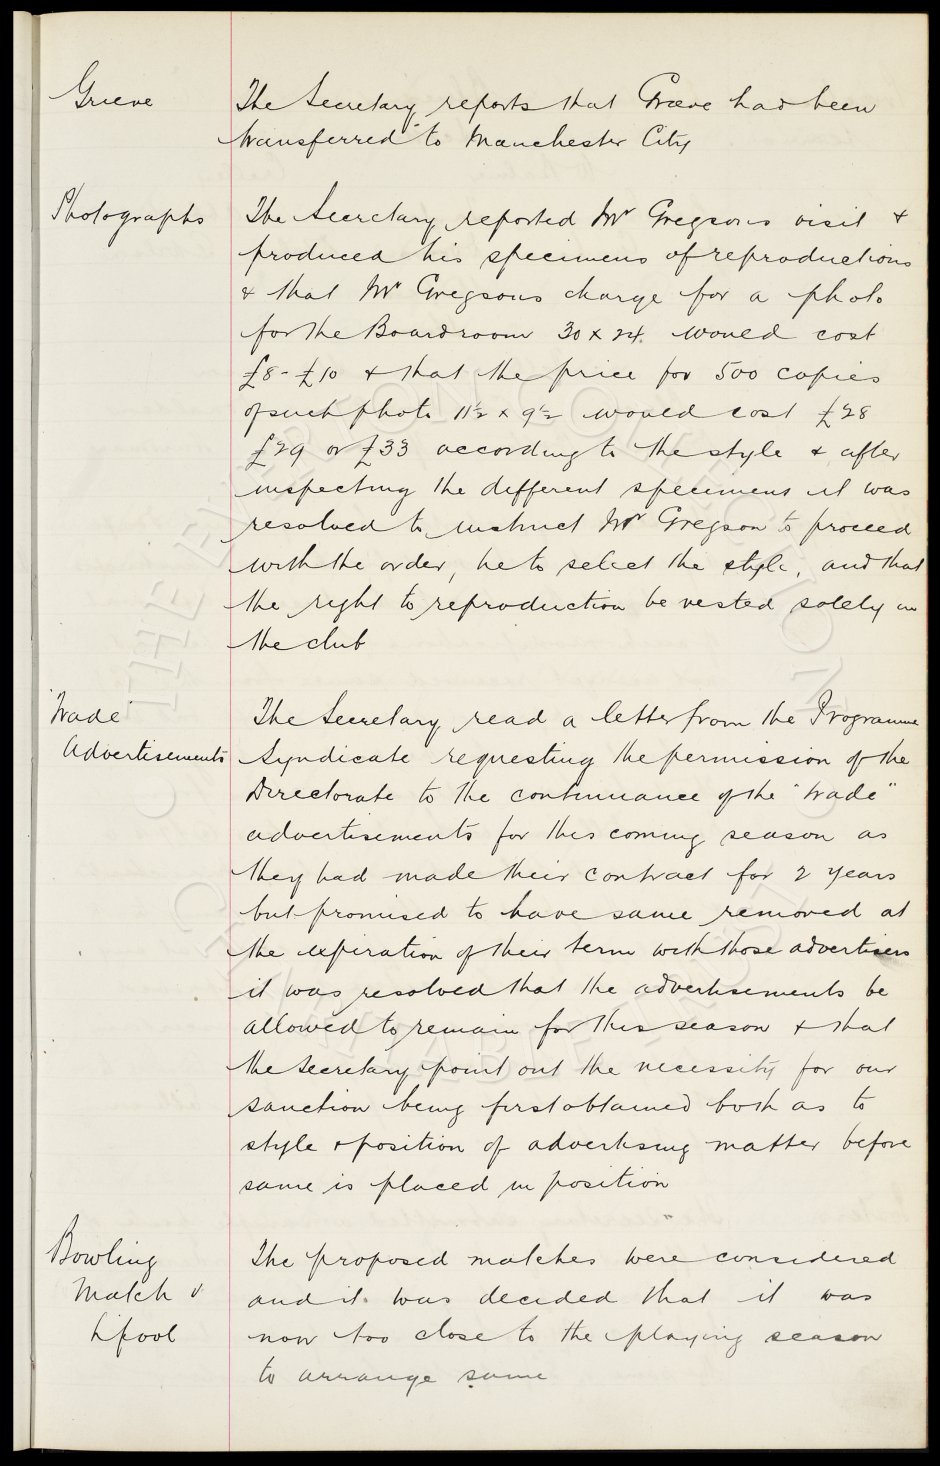 Grieve
The Secretary reports that Grieve had been
transferred to Manchester City
Photographs
The Secretary reported Mr Gregsons visit &
produced his specimens of reproductions
& that Mr Gregsons charge for a photo
for the Boardroom 30 x 24 would cost
£8 - £10 & that the price for 500 copies
of such photo 11½ x 9½ would cost £28
£29 or £33 according to the style & after
inspecting the different specimens it was
resolved to instruct Mr Gregson to proceed
with the order, he to select the style, and that
the right to reproduction be vested solely in
the club
"Trade"
Advertisements
The Secretary read a letter from the Programme
Syndicate requesting the permission of the
Directorate to the continuance of the "trade"
advertisements for this coming season as
they had made their contract for 2 years
but promised to have same removed at
the expiration of their term with those advertisers
it was resolved that the advertisements be
allowed to remain for this season & that
the Secretary point out the necessity for our
sanction being first obtained both as to
style & position of advertising matter before
same is placed in position
Bowling
Match v
L'pool
The proposed matches were considered
and it was decided that it was
now too close to the playing season
to arrange same
THE EVERTON COLLECTION